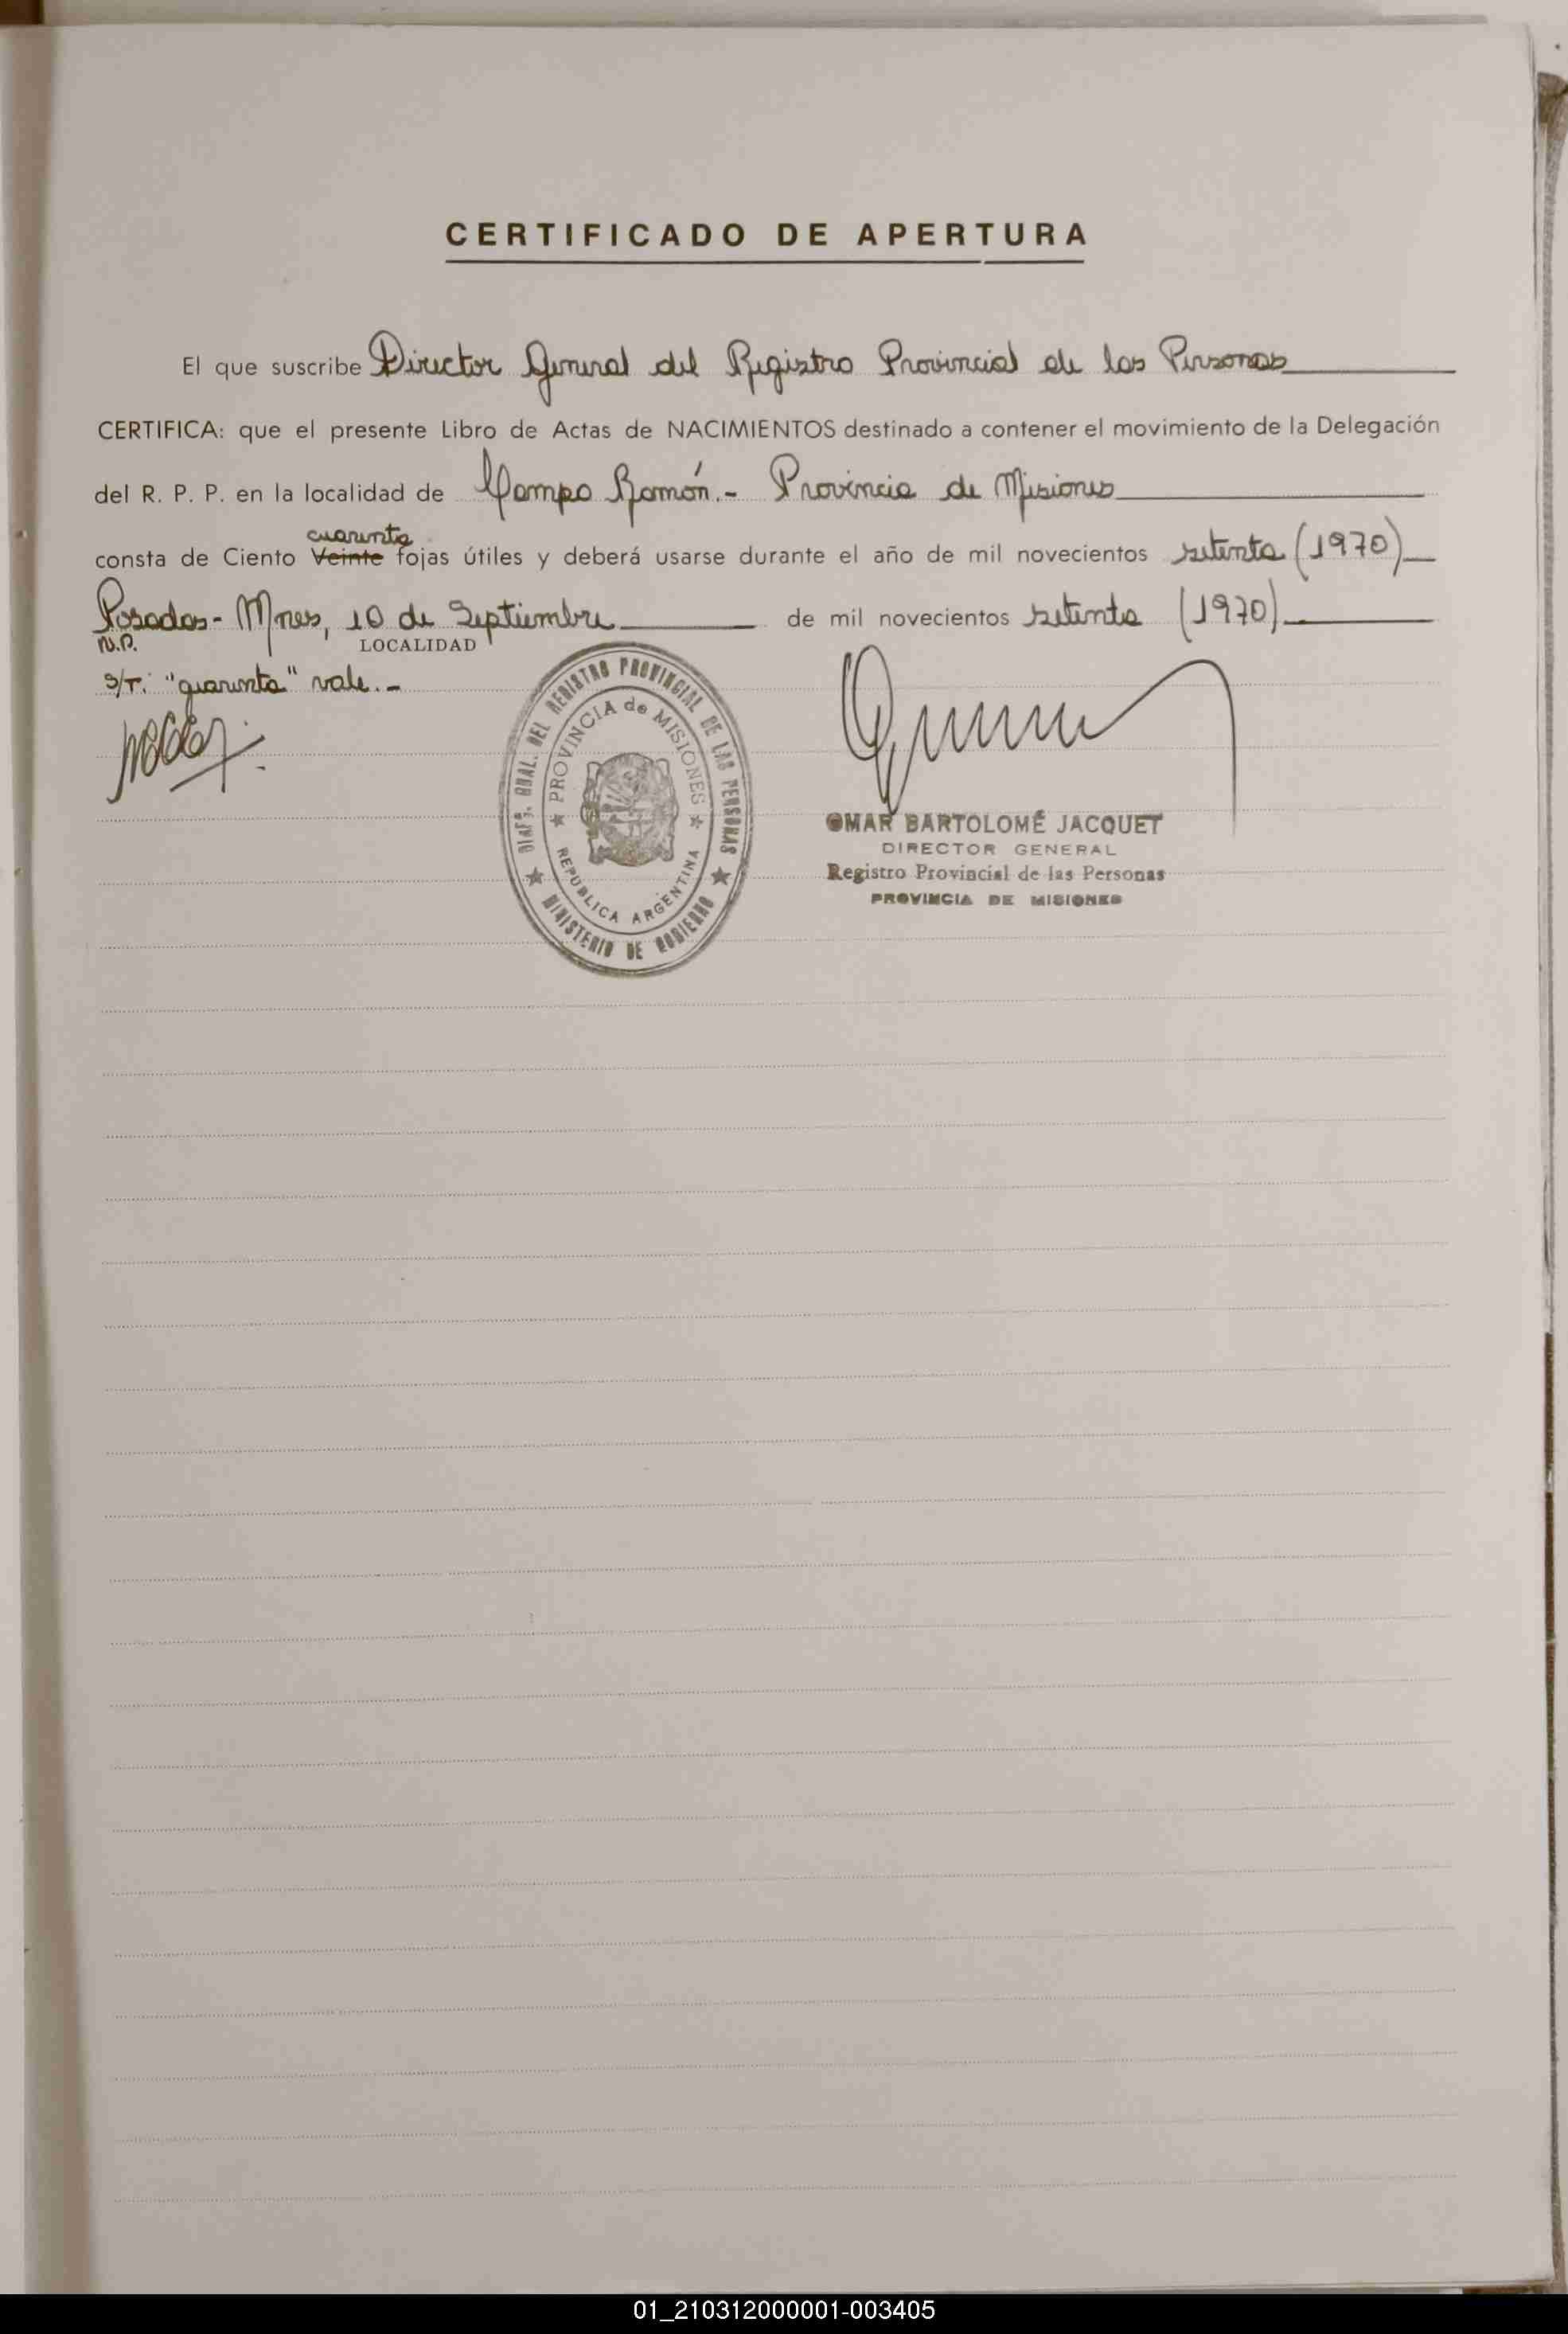 CERTIFICADO DE APERTURA
El que suscribe Director General del Registro Provincial de las Personas
CERTIFICA: que el presente Libro de Actas de NACIMIENTOS destinado a contener el movimiento de la Delegación
del R. P. P. en la localidad de Campo Ramón.- Provincia de Misiones
cuarenta
consta de Ciento Veinte fojas útiles y deberá usarse durante el año de mil novecientos setenta (1970)
Posadas- Mnes, 10 de Septiembre de mil novecientos setenta (1970)
N.P. LOCALIDAD
S/T. "quarenta" vale.-
DIRECC. GRAL. DEL REGISTRO PROVINCIAL DE LAS PERSONAS
PROVINCIA de MISIONES
REPUBLICA ARGENTINA
MINISTERIO DE GOBIERNO
OMAR BARTOLOMÉ JACQUET
DIRECTOR GENERAL
Registro Provincial de las Personas
PROVINCIA DE MISIONES
01_210312000001-003405